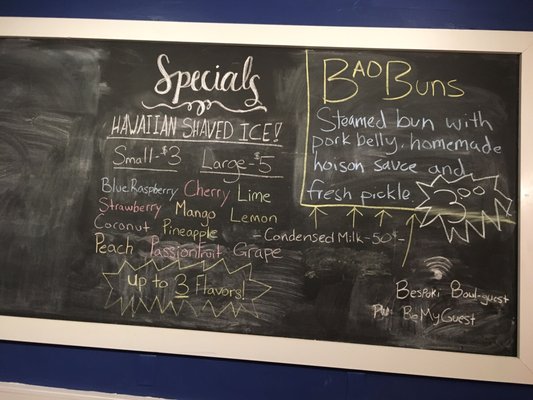 Specials
HAWAIIAN SHAVED ICE!
Small-$3 Large-$5
Blue Raspberry Cherry Lime
Strawberry Mango Lemon
Coconut Pineapple
Peach Passionfruit Grape
Up to 3 Flavors!
-Condensed Milk-50¢-
BAO BUNS
Steamed bun with
pork belly, homemade
hoison sauce and
fresh pickle.
3.00
Bespoki Bowl-guest
PW: BeMyGuest